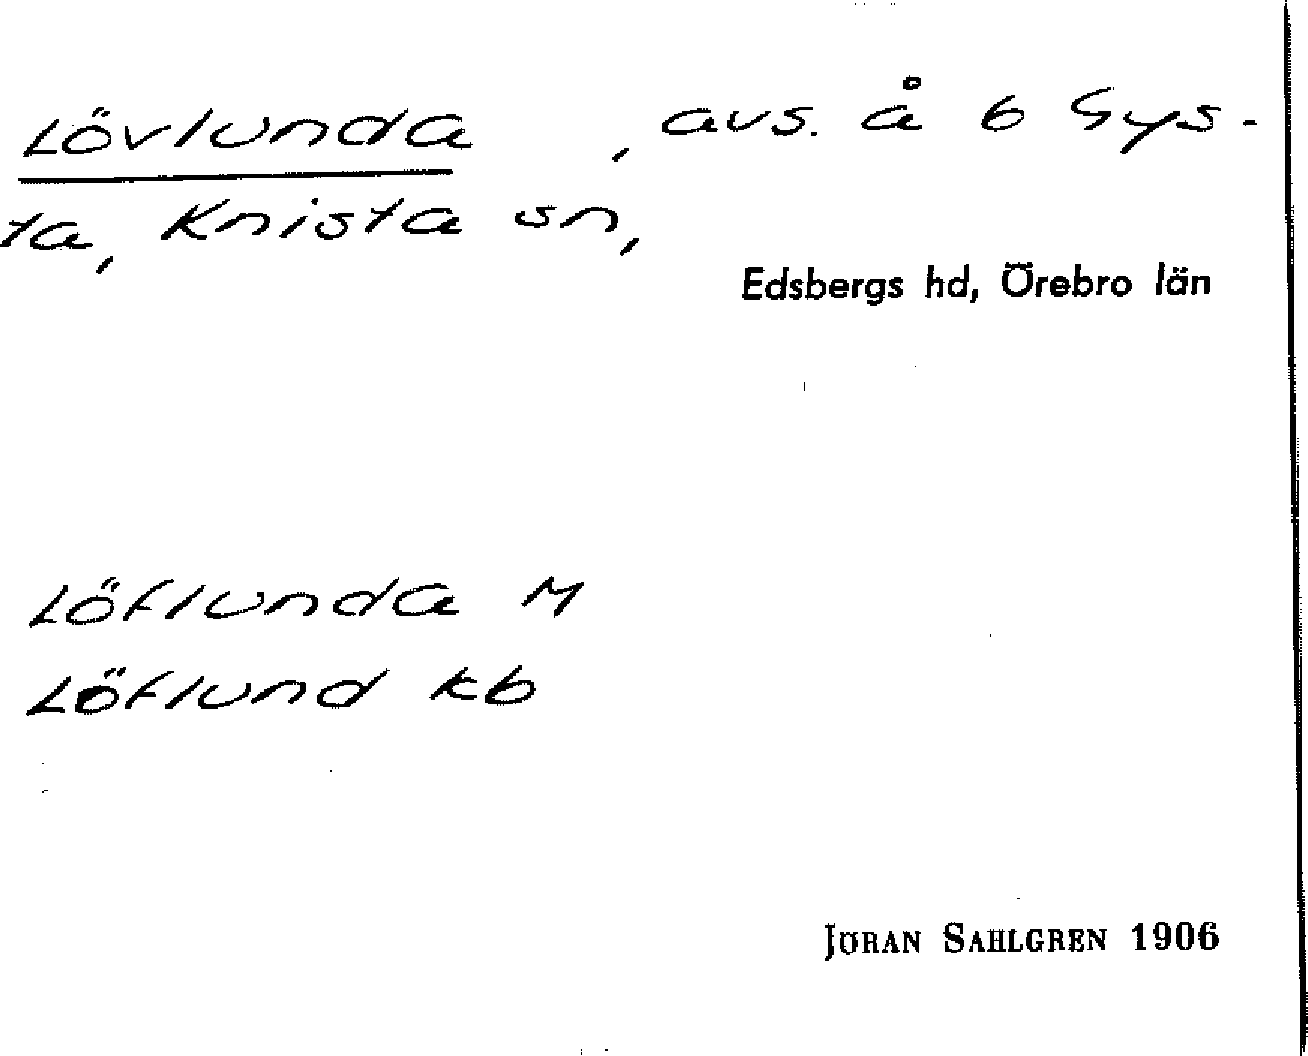 Lövlunda, avs. å 6 Gys-
ta, Knista sn,
Edsbergs hd, Örebro län
Löflunda M
Löflund kb
JÖRAN SAHLGREN 1906